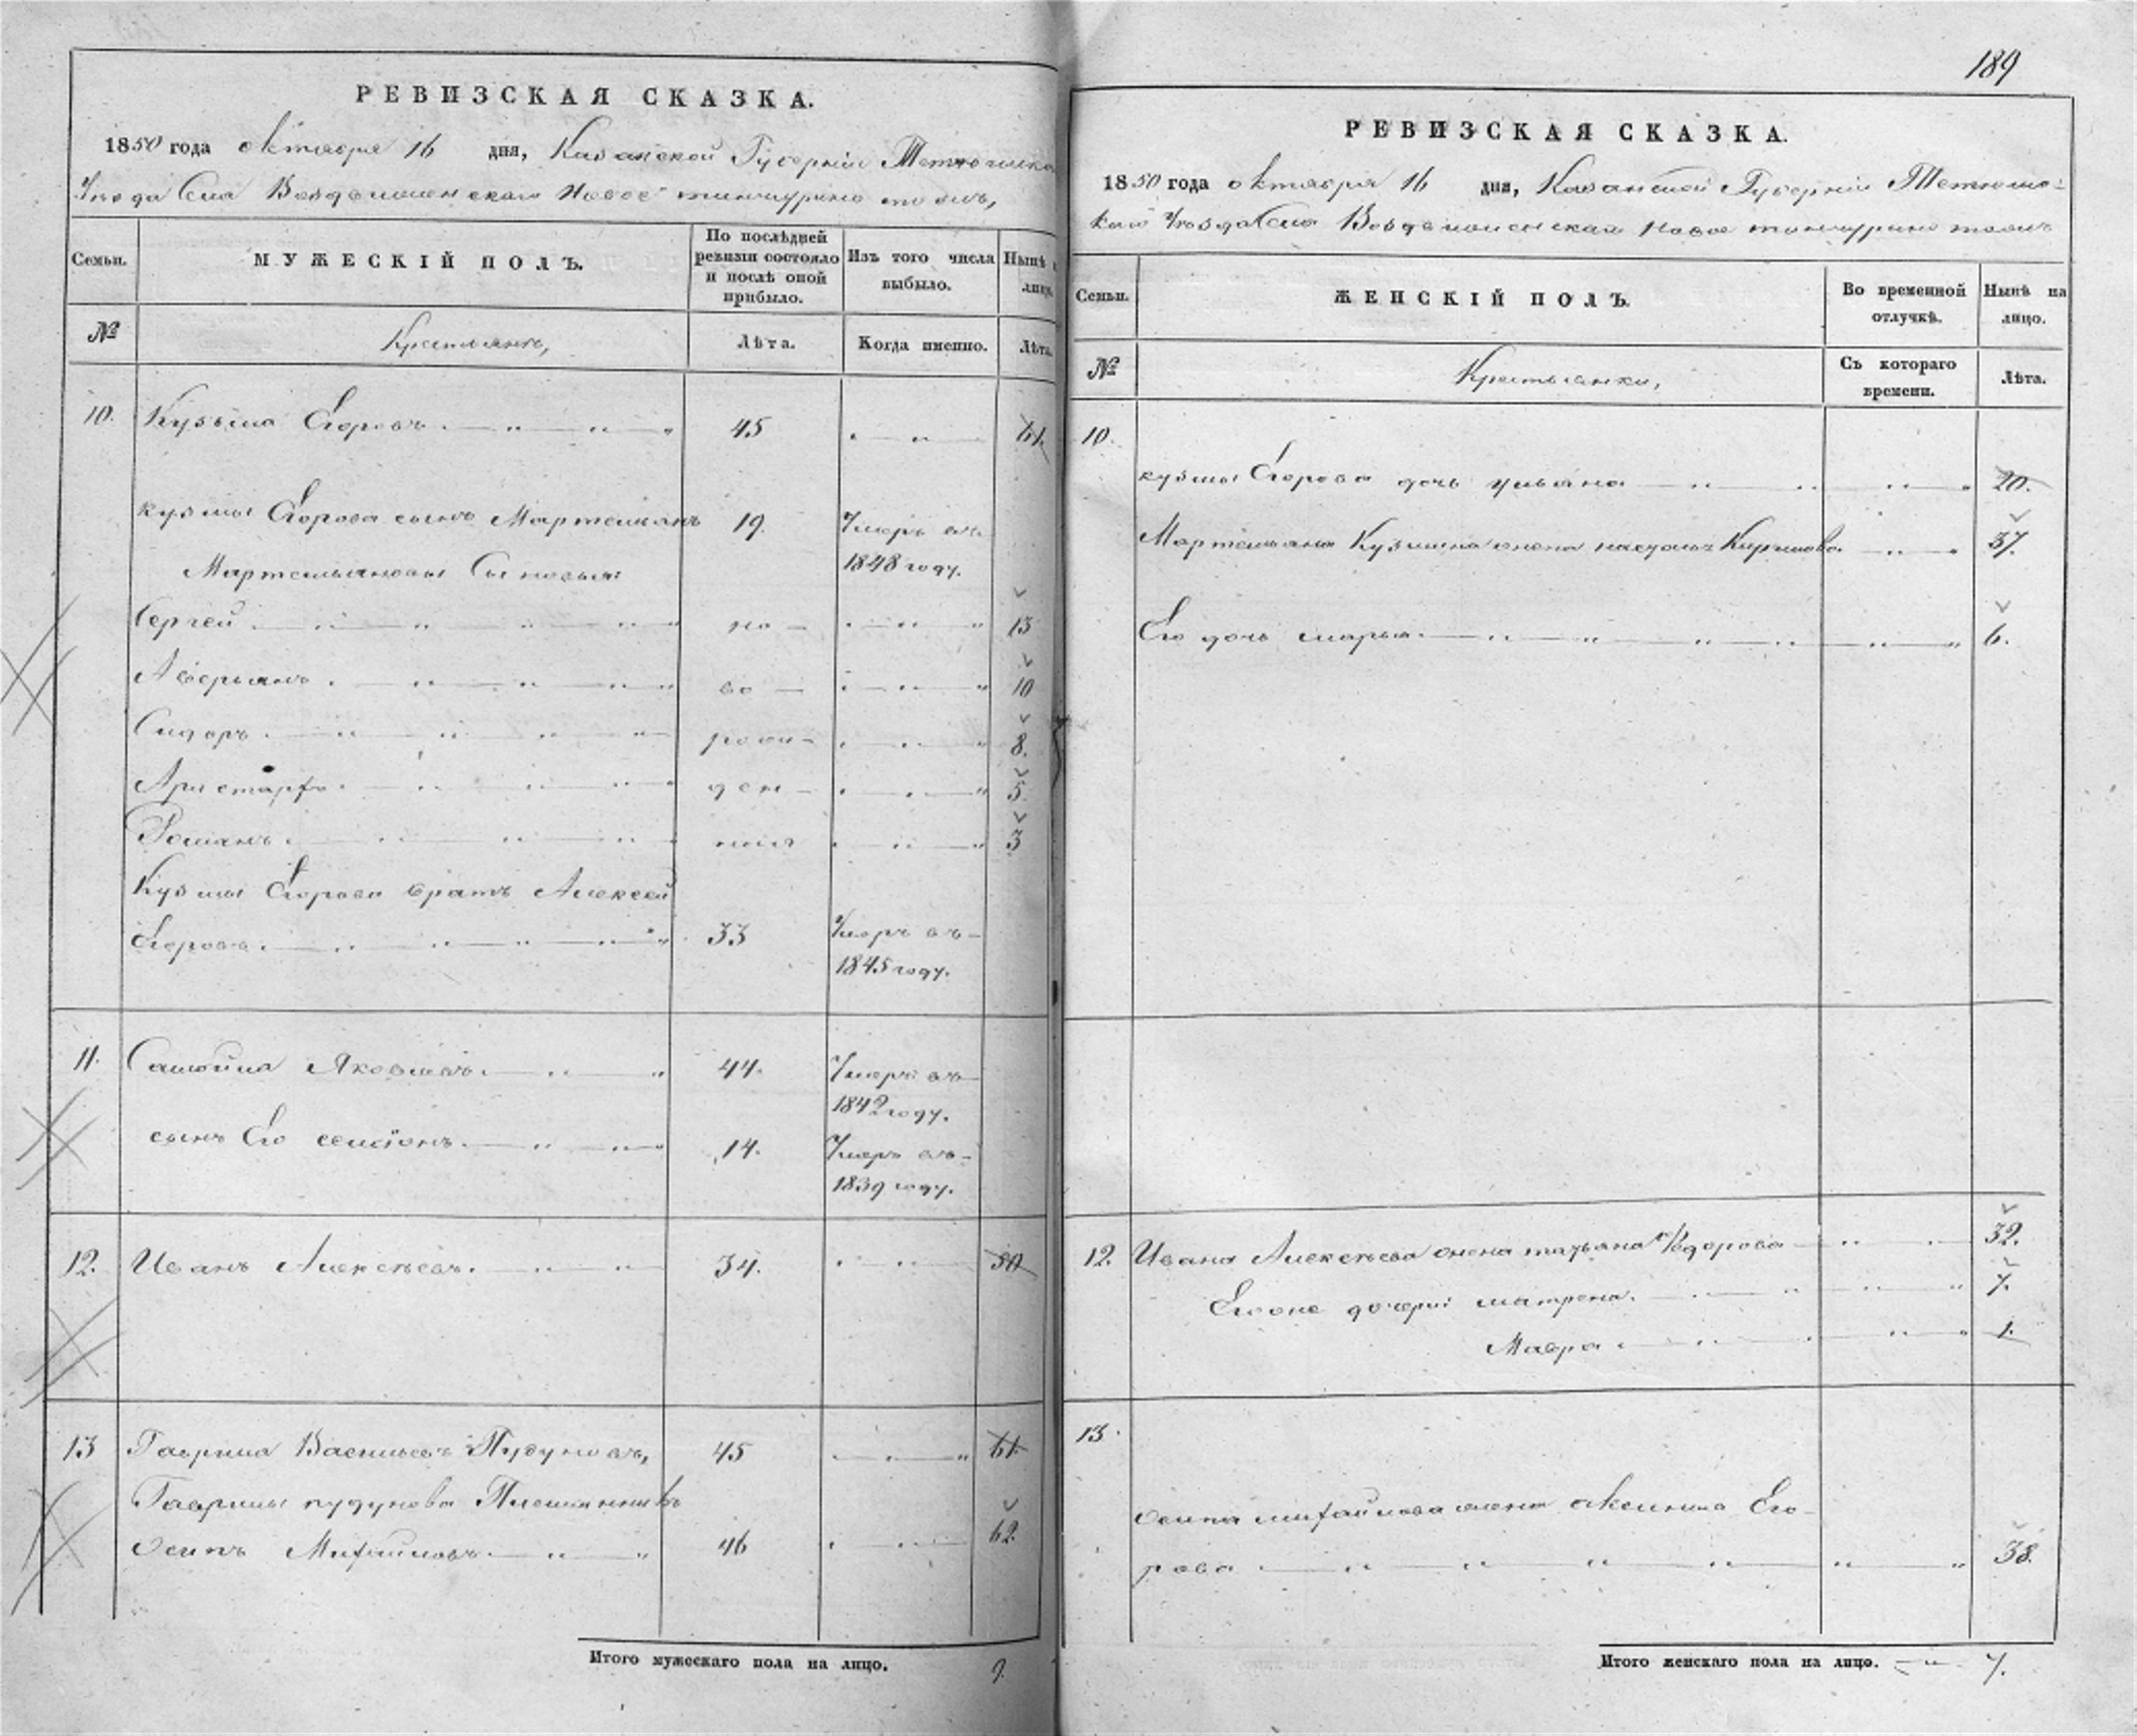 РЕВИЗСКАЯ СКАЗКА.
1850 года октября 16 дня, Казанской Губерніи
Уезда Села Воздвиженскаго Новое тинчурино тожъ,
Семьи. МУЖЕСКІЙ ПОЛЪ. По послѣдней ревизіи состояло и послѣ оной прибыло. Изъ того числа выбыло. Нынѣ лицо
№ Крестьянъ, Лѣта. Когда именно. Лѣта.
10. Кузьма Егоровъ. 45 61.
кузмы Егорова сынъ Мартемьянъ 19. Умеръ въ
1848 году.
Мартемьяновы Сыновья:
Сергей. но- 13
Аверьянъ. во- 10
Сидоръ. рож- 8.
Аристархъ. ден- 5.
Романъ. ныя 3
Кузмы Егорова братъ Алексей
Егоровъ. 33 Умеръ въ
1845 году.
11. Самойла Яковлевъ. 44. Умеръ въ
1842 году.
сынъ Его семіонъ. 14. Умеръ въ
1839 году.
12. Иванъ Алексѣевъ. 34. 50
13 Гаврила Васильевъ Пудуновъ, 45 61.
Гаврилы пудунова Племянникъ
Осипъ Михайловъ. 46 62.
Итого мужескаго пола на лицо. 9.
189
РЕВИЗСКАЯ СКАЗКА.
1850 года октября 16 дня, Казанской Губерніи Тетюшс-
каго Уезда Села Воздвиженскаго Новое тинчурино тожъ
Семьи. ЖЕНСКІЙ ПОЛЪ. Во временной отлучкѣ. Нынѣ на лицо.
№ Крестьянки, Съ котораго времени. Лѣта.
10.
кузмы Егорова дочь ульяна 20.
Мартемьяна Кузмина жена Кирилова 37.
Его дочь марья. 6.
12. Ивана Алексѣева жена татьяна Федорова 32.
Его оне дочери: матрена. 7.
Мавра. 1.
13.
Осипа михайлова жена аксинья Его-
рова 38.
Итого женскаго пола на лицо. 7.